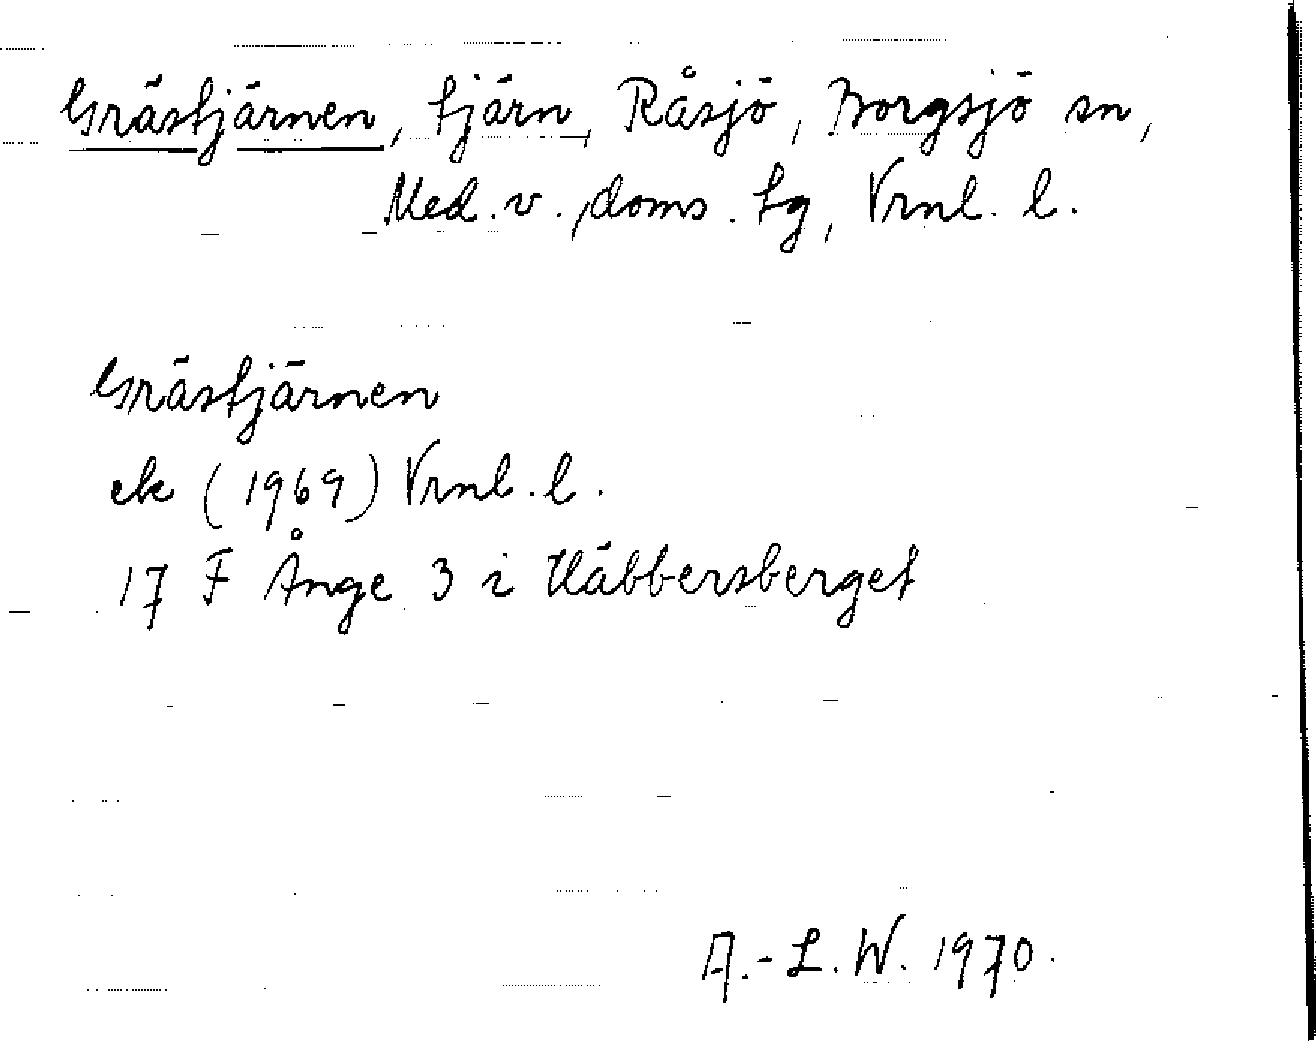 Grästjärnen, tjärn, Råsjö, Borgsjö sn,
Med. v. doms. tg, Vrnl. l.
Grästjärnen
ek (1969) Vrnl. l.
17 F Ånge 3 i Häbbersberget
A.-L. W. 1970.